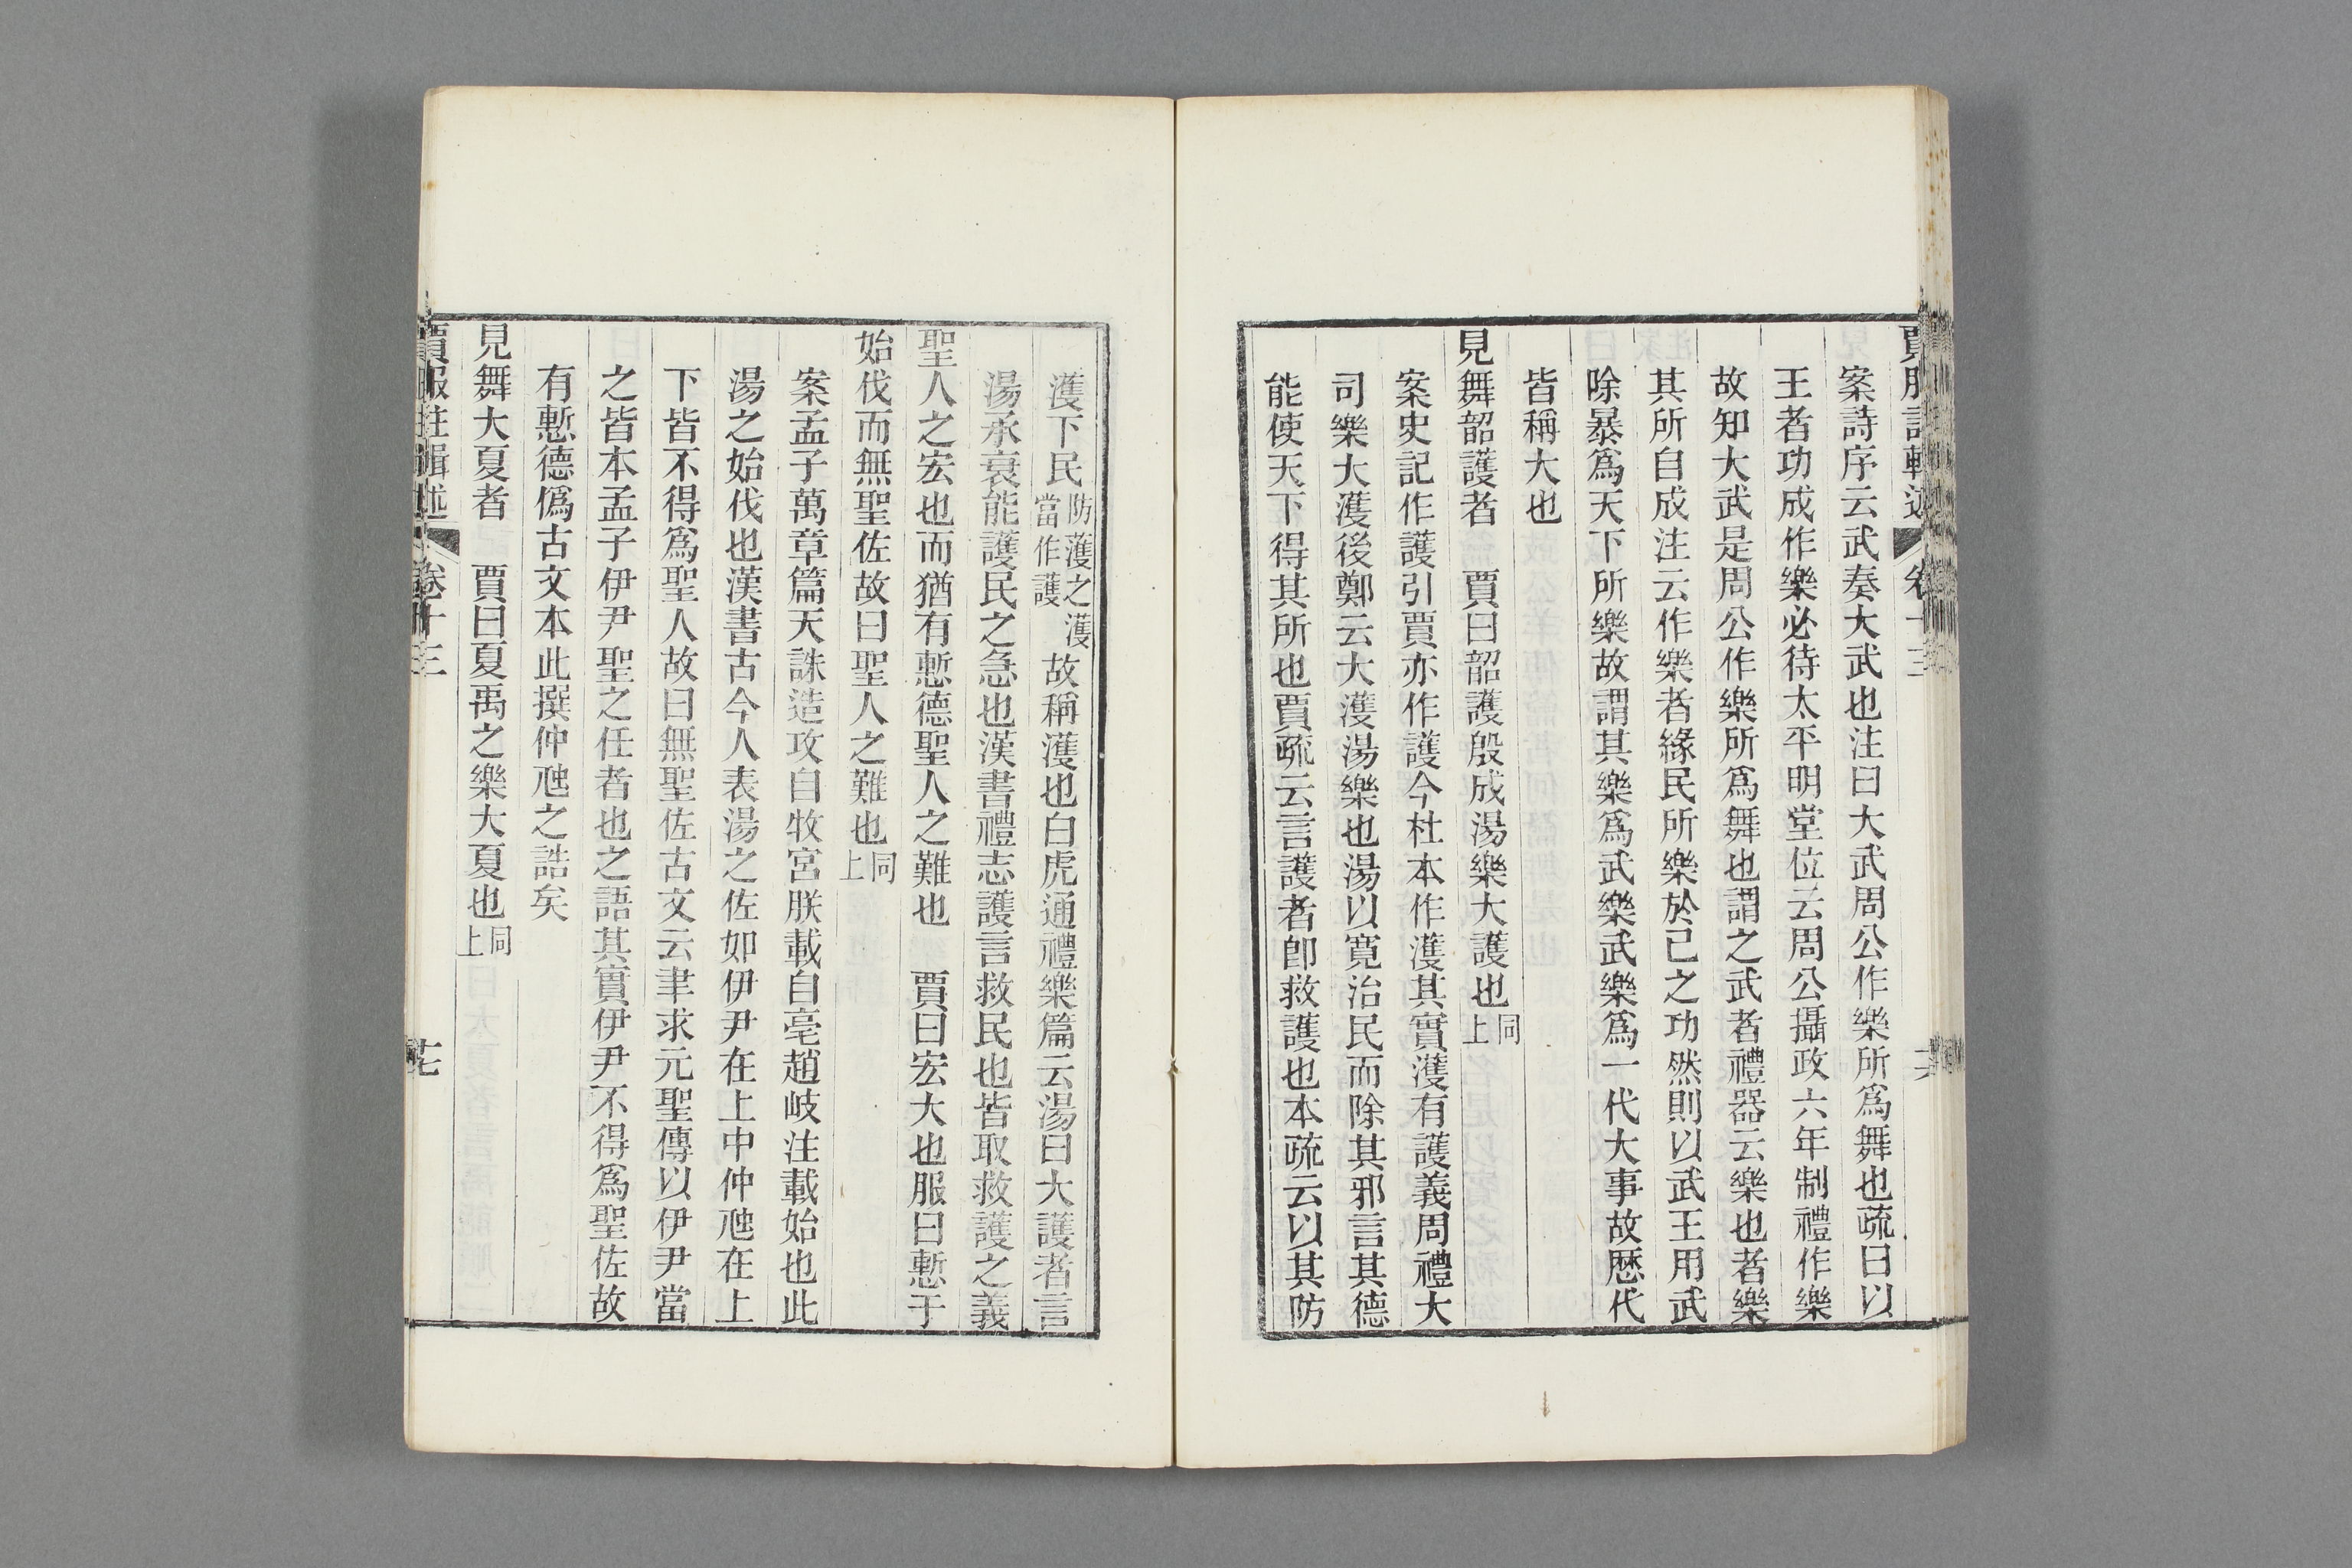 案詩序云武奏大武也注曰大武周公作樂所爲舞也疏曰以
王者功成作樂必待太平明堂位云周公攝政六年制禮作樂
故知大武是周公作樂所爲舞也謂之武者禮器云樂也者樂
其所自成注云作樂者緣民所樂於己之功然則以武王用武
除暴爲天下所樂故謂其樂爲武樂武樂爲一代大事故歷代
皆稱大也
見舞韶護者　賈曰韶護殷成湯樂大護也同上
案史記作護引賈亦作護今杜本作濩其實濩有護義周禮大
司樂大濩後鄭云大濩湯樂也湯以寬治民而除其邪言其德
能使天下得其所也賈疏云言護者卽救護也本疏云以其防
濩下民防濩之濩當作護故稱濩也白虎通禮樂篇云湯曰大護者言
湯承衰能護民之急也漢書禮志護言救民也皆取救護之義
聖人之宏也而猶有慙德聖人之難也　賈曰宏大也服曰慙于
始伐而無聖佐故曰聖人之難也同上
案孟子萬章篇天誅造攻自牧宮朕載自亳趙岐注載始也此
湯之始伐也漢書古今人表湯之佐如伊尹在上中仲虺在上
下皆不得爲聖人故曰無聖佐古文云聿求元聖傳以伊尹當
之皆本孟子伊尹聖之任者也之語其實伊尹不得爲聖佐故
有慙德僞古文本此撰仲虺之誥矣
見舞大夏者　賈曰夏禹之樂大夏也同上
賈服注輯述　卷十三　十七